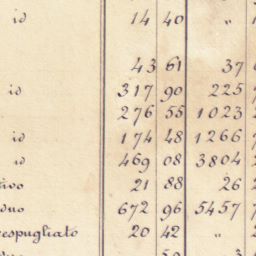 id 14 40 "
43 61 37
id 317 90 225
276 55 1023
id 174 48 1266
id 469 08 3804
ivo 21 88 26
duo 672 96 5457
respugliato 20 42 "